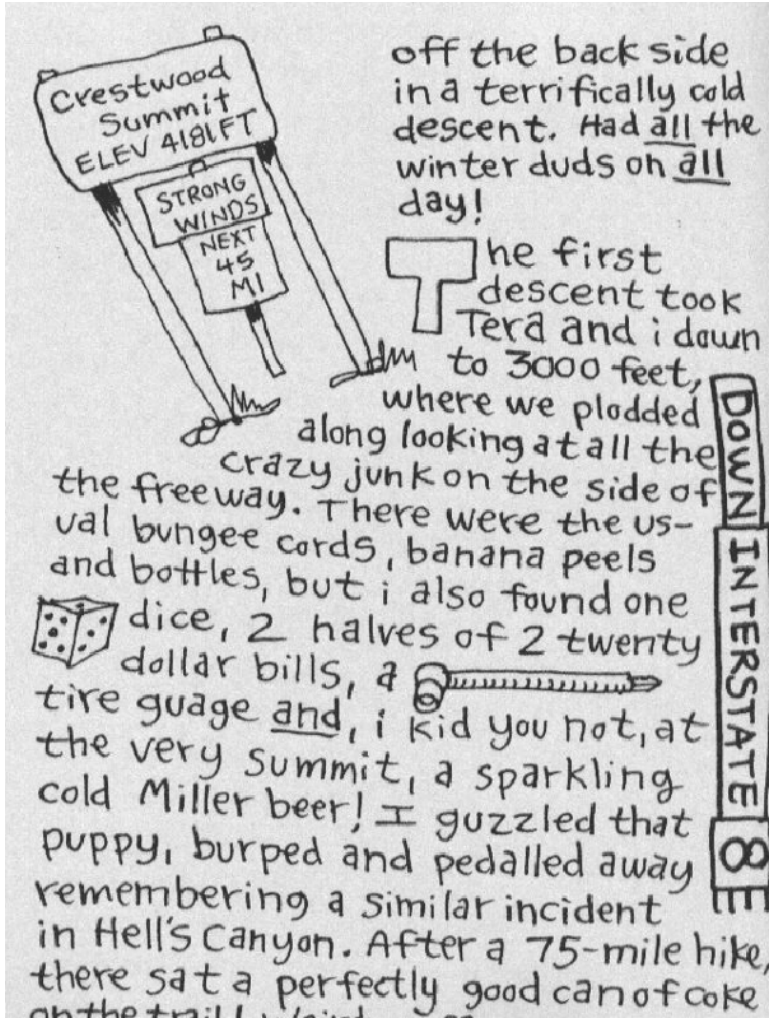 Crestwood
Summit
ELEV 4181FT
STRONG
WINDS
NEXT
45
MI
off the back side
in a terrifically cold
descent. Had all the
winter duds on all
day!
The first
descent took
Tera and i down
to 3000 feet,
where we plodded
along looking at all the
crazy junk on the side of
the freeway. There were the us-
ual bungee cords, banana peels
and bottles, but i also found one
dice, 2 halves of 2 twenty
dollar bills, a
tire guage and, i kid you not, at
the very summit, a sparkling
cold Miller beer! I guzzled that
puppy, burped and pedalled away
remembering a similar incident
in Hell's Canyon. After a 75-mile hike,
there sat a perfectly good can of coke
on the trail!
DOWN INTERSTATE 8E